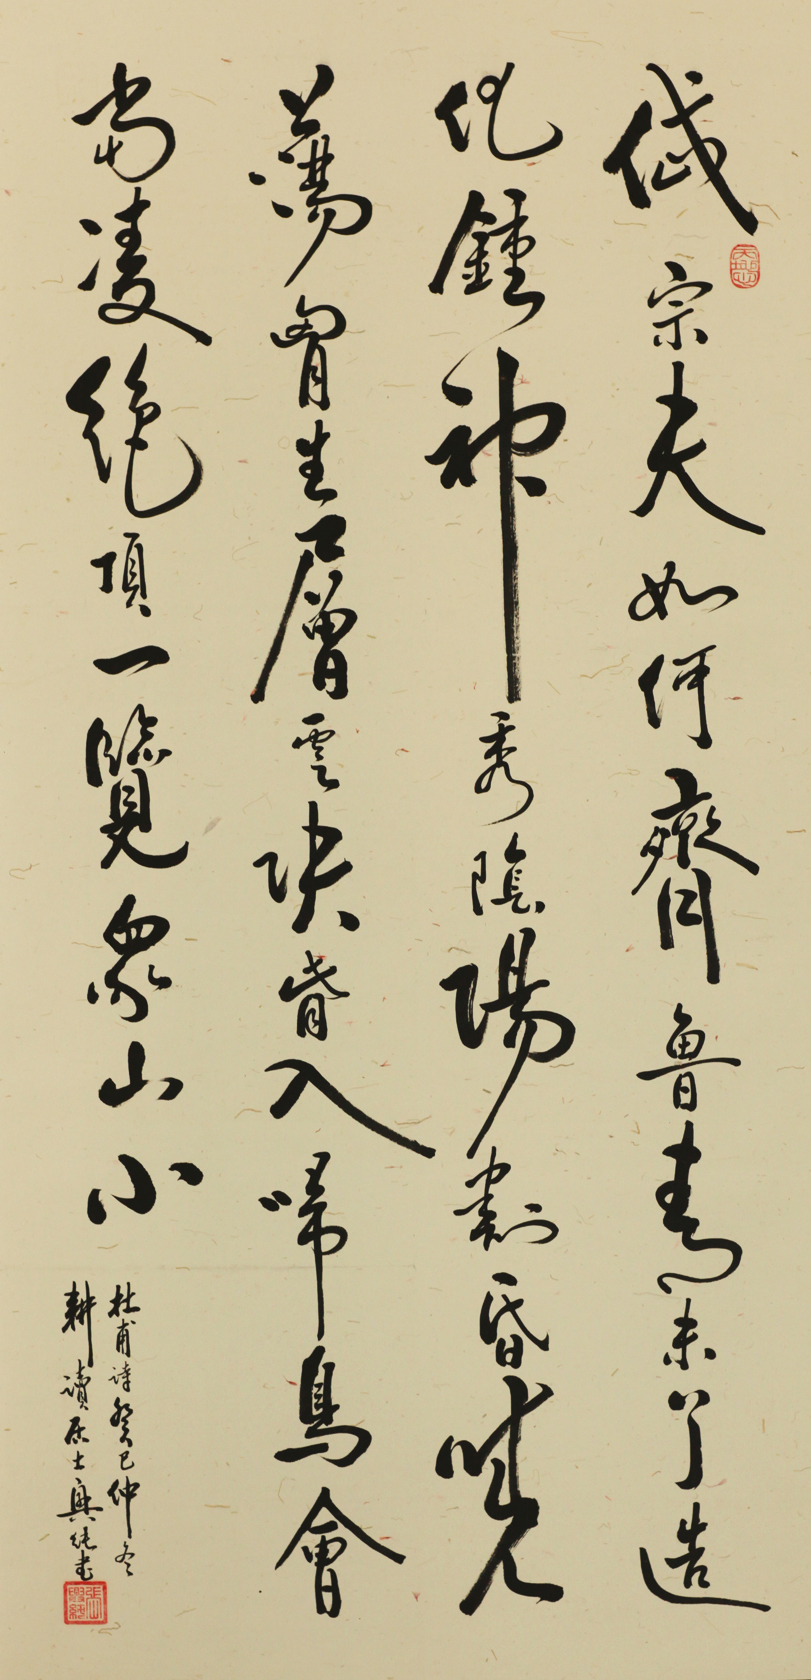 岱宗夫如何齊魯青未了造
化鍾神秀陰陽割昏曉
蕩胷生層雲決眥入歸鳥會
當凌絕頂一覽眾山小
杜甫詩癸巳仲冬
耕讀居士興純書